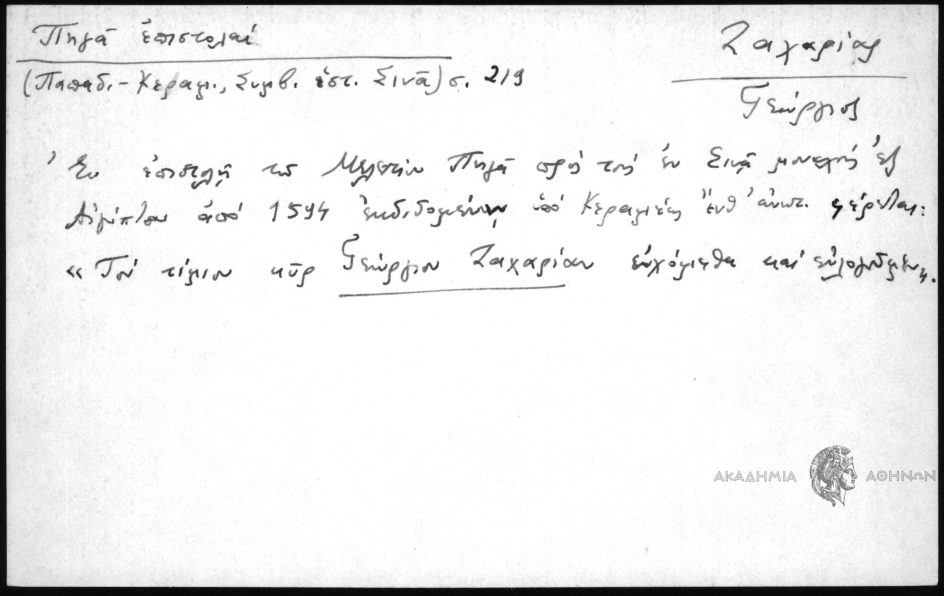 Πηγᾶ ἐπιστολαί
(Παπαδ.-Κεραμ., Συμβ. ἱστ. Σινᾶ) σ. 219
Ζαχαρίας
Γεώργιος
Ἐν ἐπιστολῇ τοῦ Μελετίου Πηγᾶ πρός τούς ἐν Σινᾷ μοναχούς ἐξ
Αἰγύπτου ἀπό 1594 ἐκδιδομένῃ ὑπό Κεραμέως ἔνθ' ἀνωτ. φέρεται:
«Τόν τίμιον κῦρ Γεώργιον Ζαχαρίαν εὐχόμεθα καί εὐλογοῦμεν».
ΑΚΑΔΗΜΙΑ ΑΘΗΝΩΝ